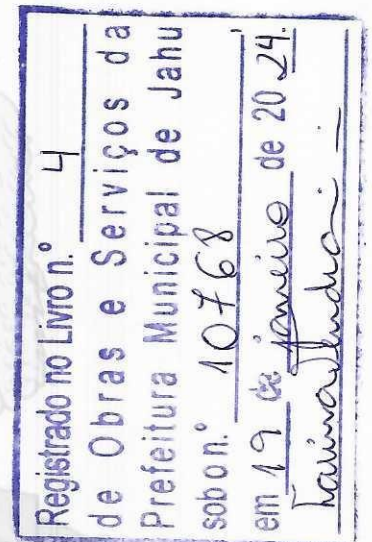 Registrado no Livro n.º 4
de Obras e Serviços da
Prefeitura Municipal de Jahu
sob o n.º 10768
em 19 de janeiro de 2024.